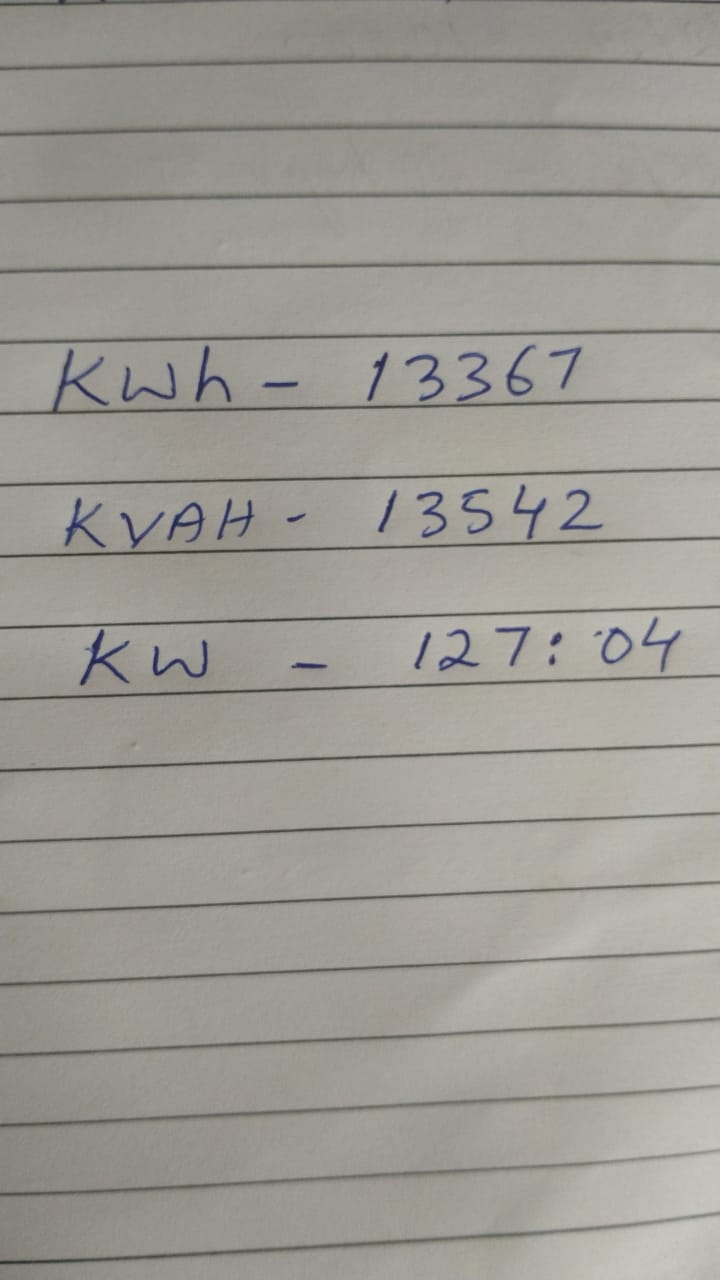 KWh - 13367
KVAH - 13542
KW - 127:04